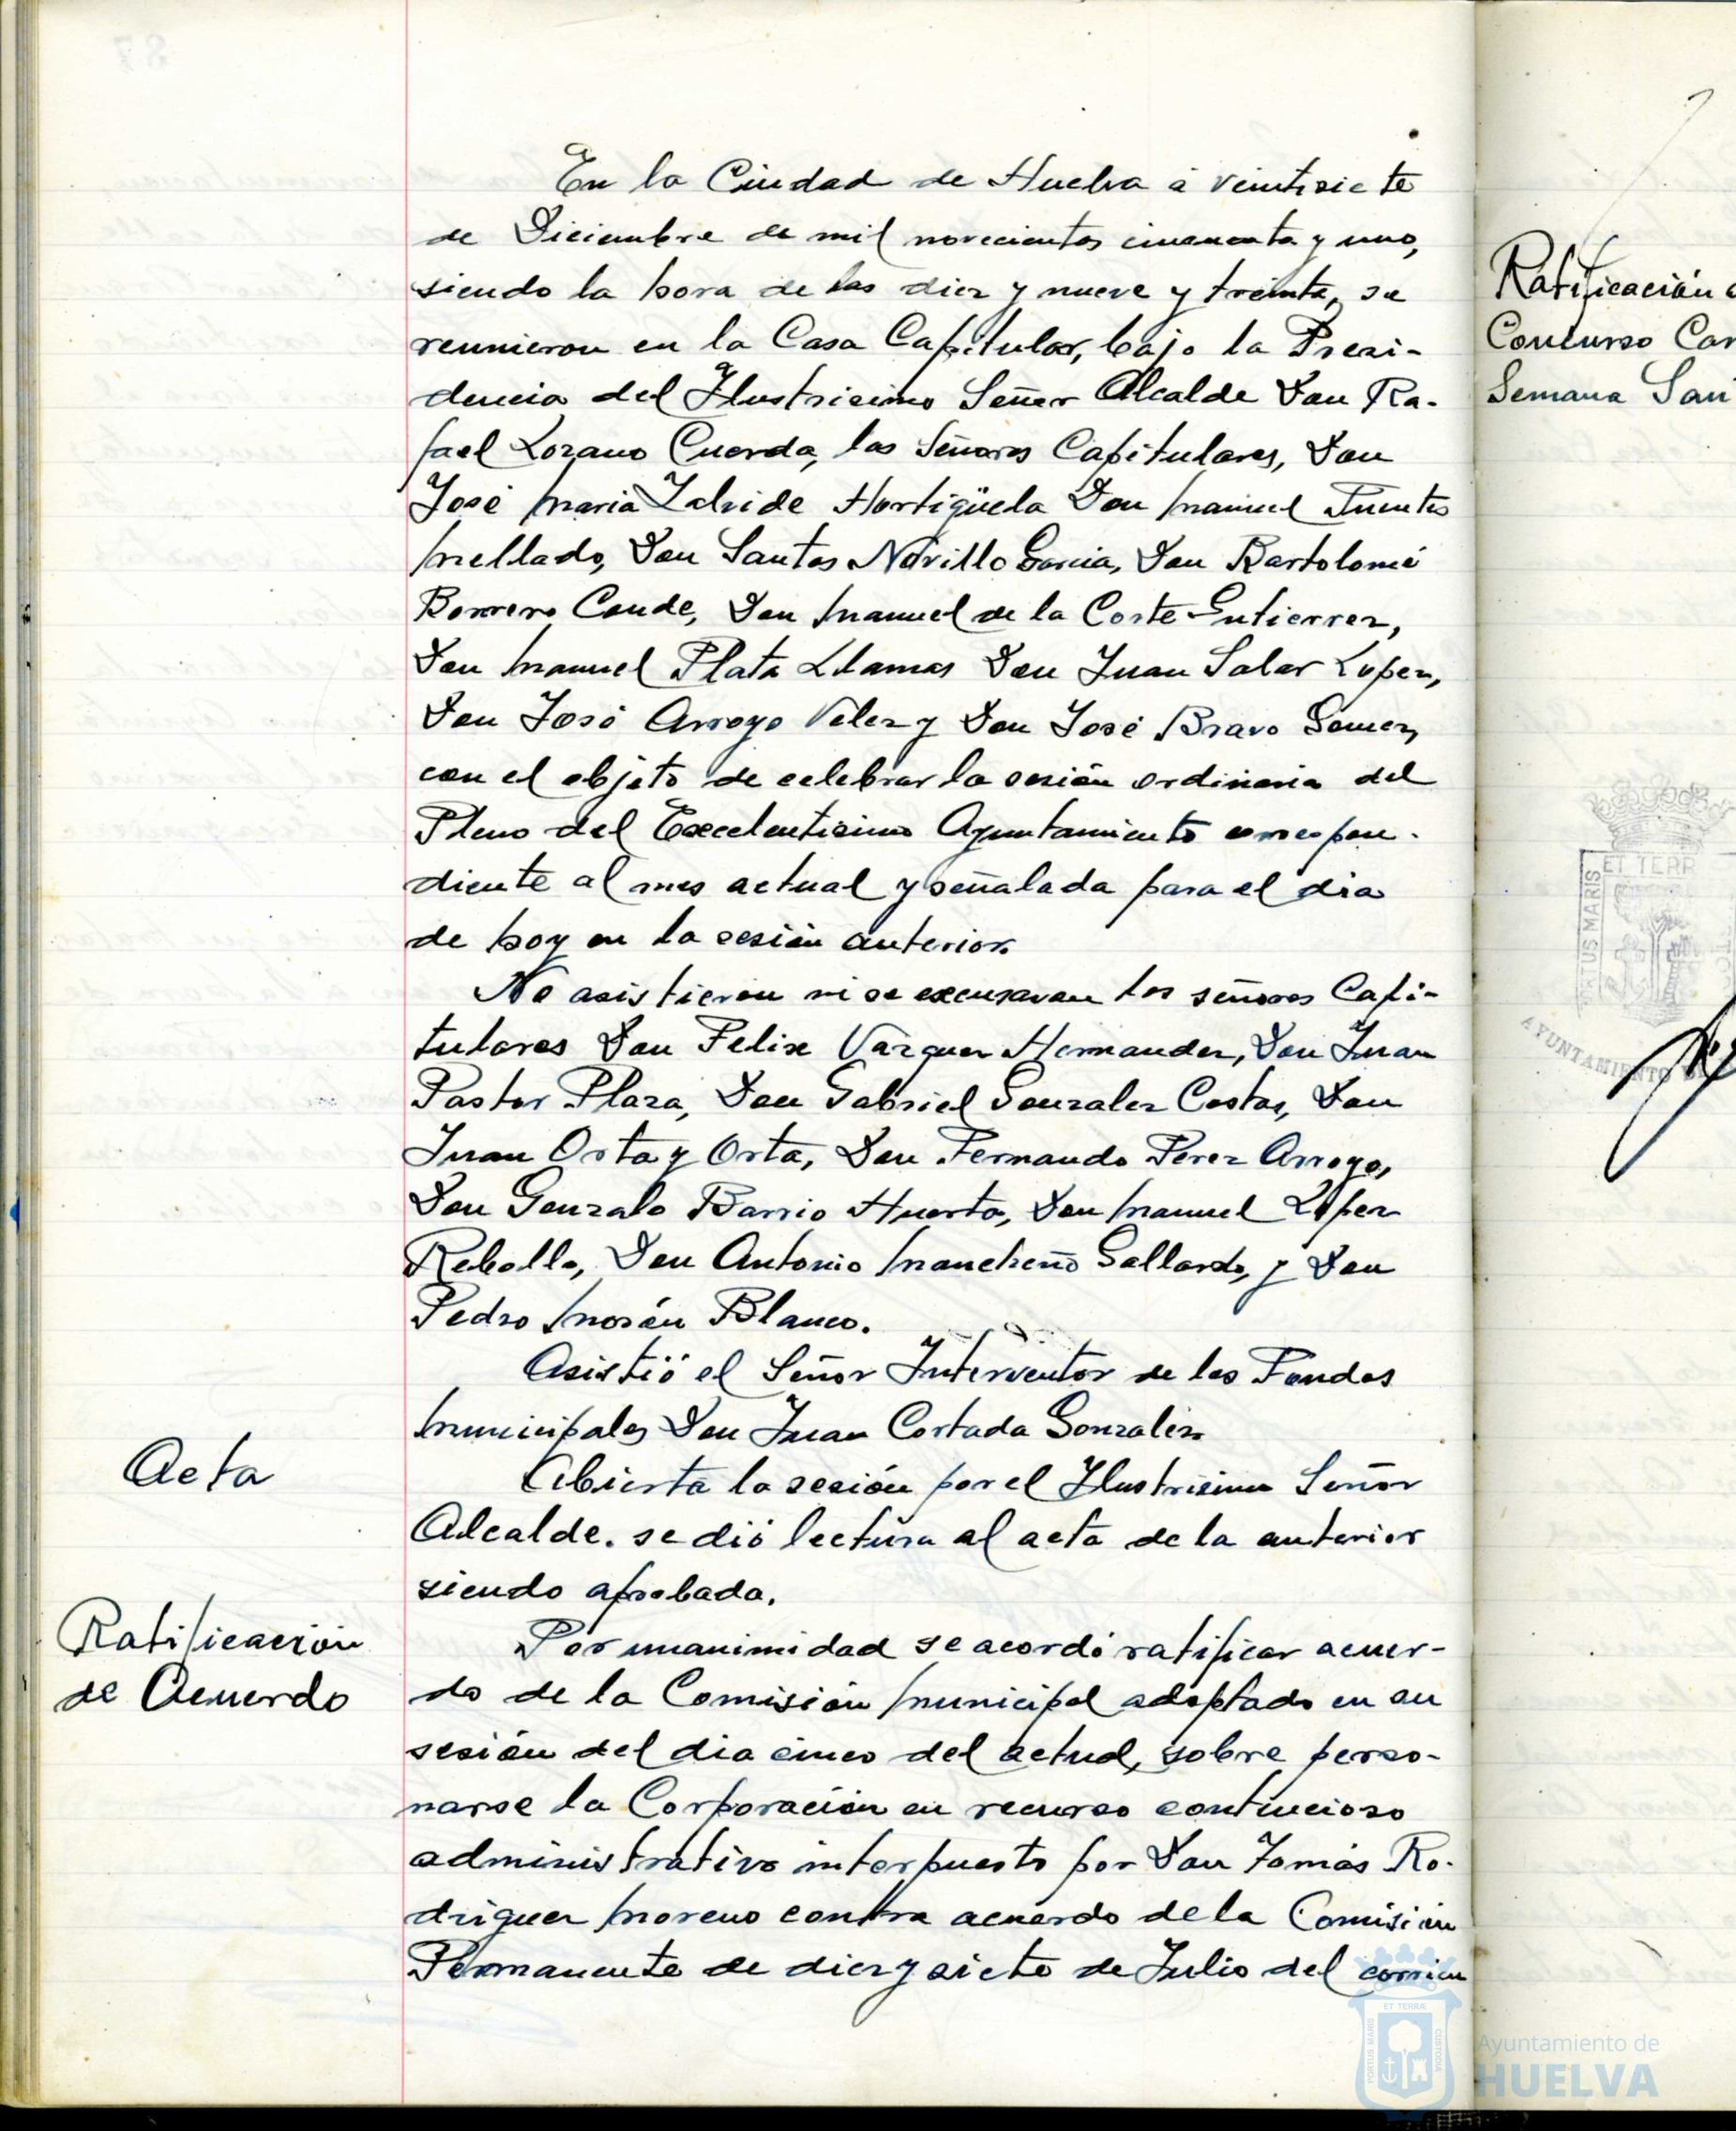 En la Ciudad de Huelva á veintisiete
de Diciembre de mil novecientos cincuenta y uno,
siendo la hora de las diez y nueve y treinta, se
reunieron en la Casa Capitular, bajo la Presi-
dencia del Ilustrisimo Señor Alcalde Don Ra-
fael Lozano Cuerda, los Señores Capitulares, Don
José Maria Zalvide Hortigüela Don Manuel Fuentes
Mellado, Don Santos Novillo Garcia, Don Bartolomé
Borrero Conde, Don Manuel de la Corte Gutierrez,
Don Manuel Plata Llamas Don Juan Salar Lopez,
Don José Arroyo Velez y Don José Bravo Gomez,
con el objeto de celebrar la sesión ordinaria del
Pleno del Excelentisimo Ayuntamiento correspon-
diente al mes actual y señalada para el dia
de hoy en la sesión anterior.
No asistieron ni se excusaron los señores Capi-
tulares Don Felix Vazquez Hernandez, Don Juan
Pastor Plaza, Don Gabriel Gonzalez Costas, Don
Juan Orta y Orta, Don Fernando Perez Arroyo,
Don Gonzalo Barrio Huerta, Don Manuel López
Rebollo, Don Antonio Mancheño Gallardo, y Don
Pedro Morón Blanco.
Asistió el Señor Interventor de los Fondos
Municipales Don Juan Cortada Gonzalez.
Acta
Abierta la sesión por el Ilustrisimo Señor
Alcalde. se dió lectura al acta de la anterior
siendo aprobada.
Ratificación
de Acuerdo
Por unanimidad se acordó ratificar acuer-
do de la Comisión Municipal adoptado en su
sesión del dia cinco del actual, sobre perso-
narse la Corporación en recurso contencioso
administrativo interpuesto por Don Tomás Ro-
driguez Moreno contra acuerdo de la Comisión
Permanente de diez y siete de Julio del corrien
Ratificación
Concurso Car
Semana San
ET TERR
PORTUS MARIS
AYUNTAMIENTO DE
ET TERRA
PORTUS MARIS
CUSTODIA
Ayuntamiento de
HUELVA